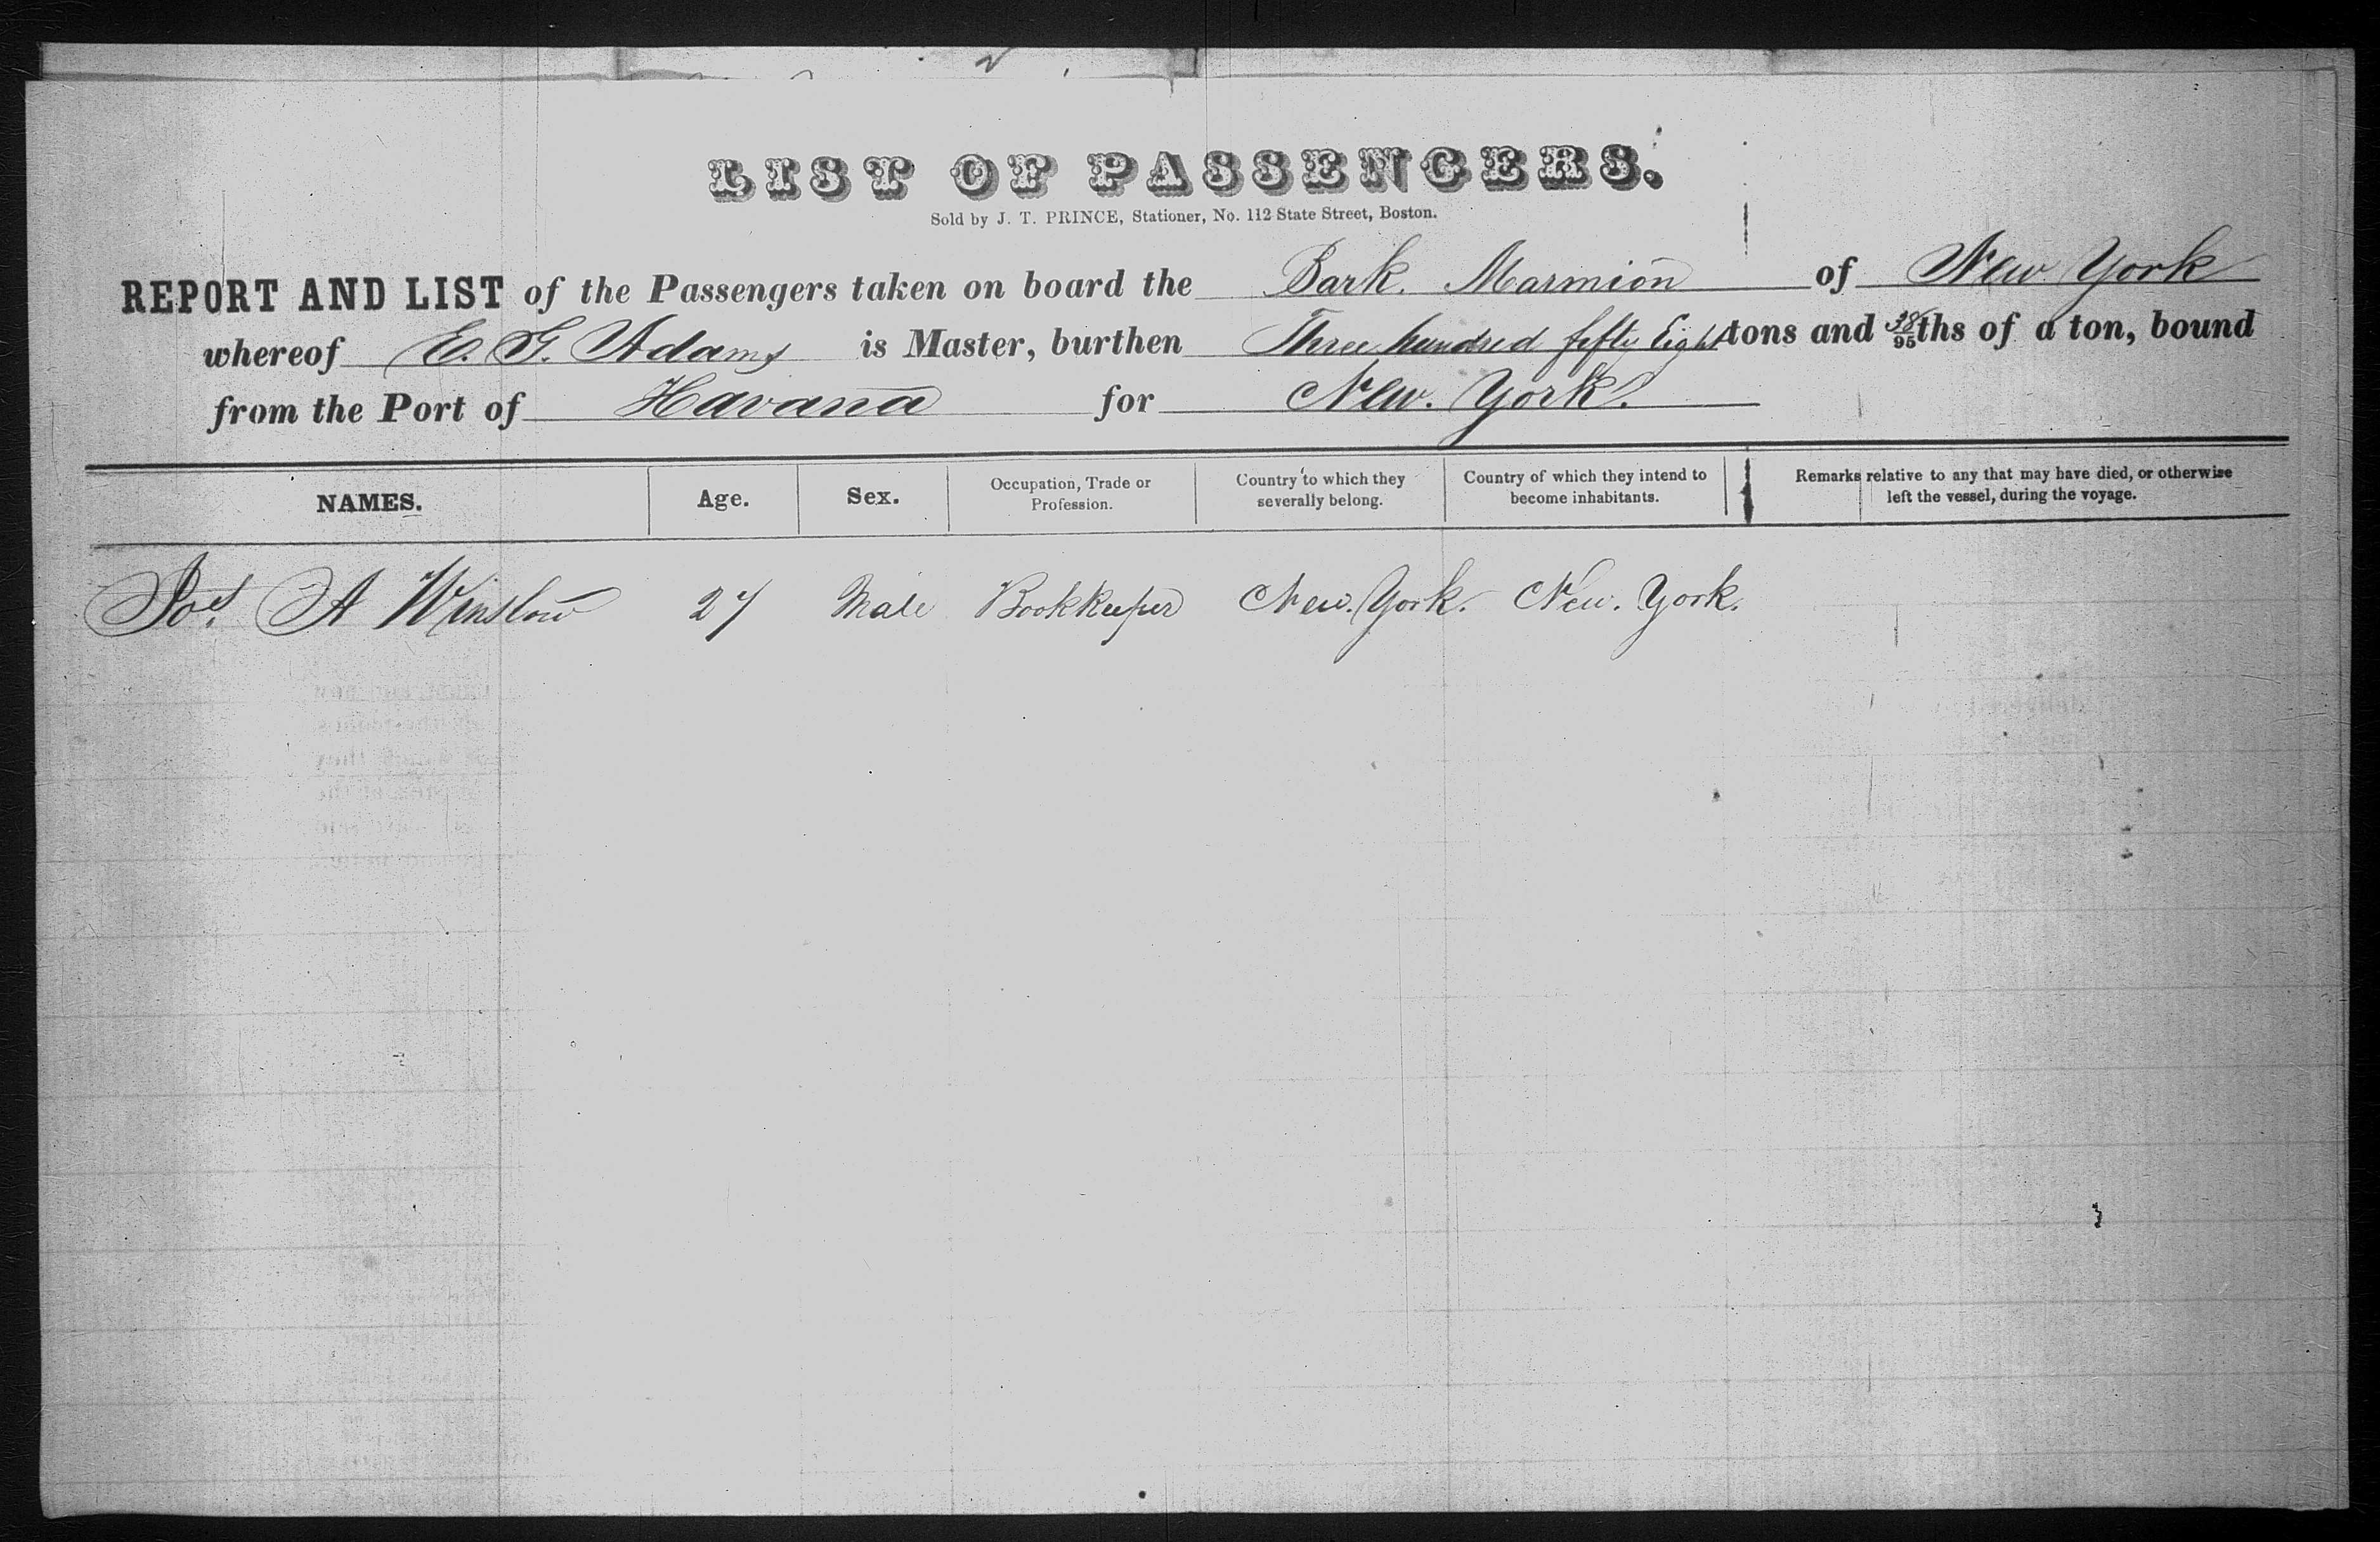 LIST OF PASSENGERS.
Sold by J. T. PRINCE, Stationer, No. 112 State Street, Boston.
REPORT AND LIST of the Passengers taken on board the Bark. Marmion of New York
whereof E. G. Adams is Master, burthen Three hundred fifty Eight tons and 38/95ths of a ton, bound
from the Port of Havana for New. York.
NAMES. Age. Sex. Occupation, Trade or Profession. Country to which they severally belong. Country of which they intend to become inhabitants. Remarks relative to any that may have died, or otherwise left the vessel, during the voyage.
Jos. A Winslow 27 Male Bookkeeper New. York. New. York.